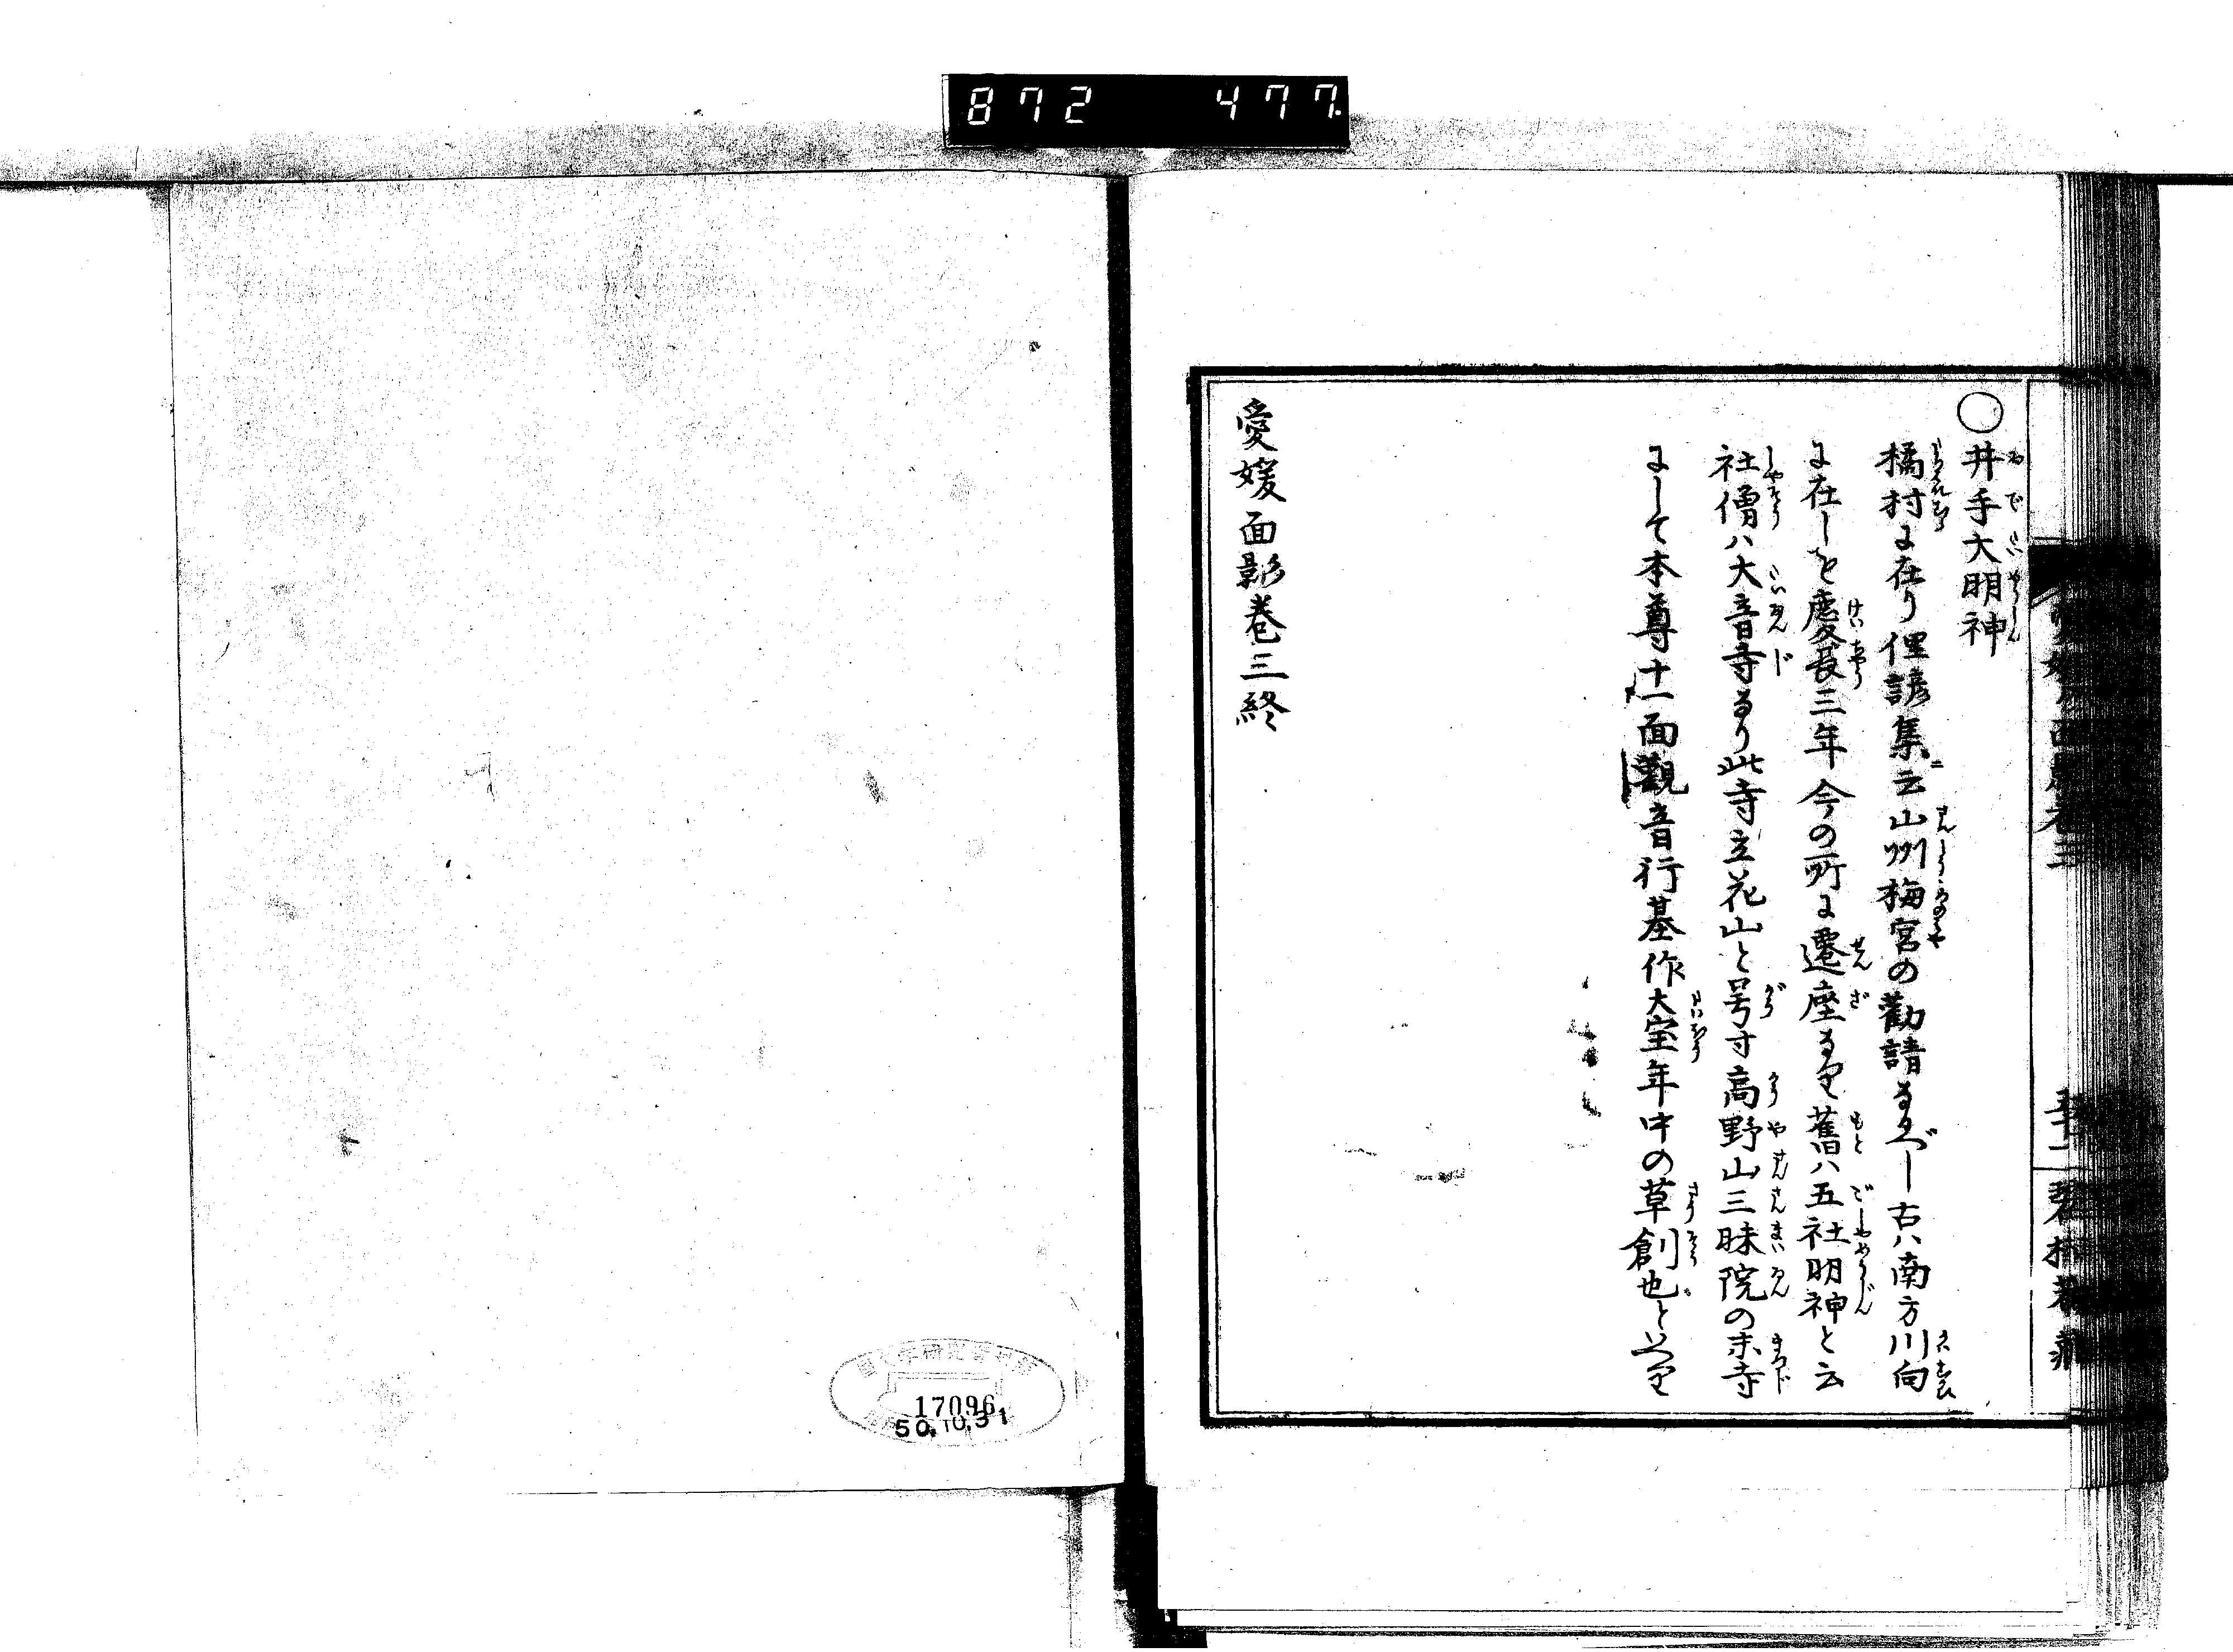 872 477
○井手大明神
橘村に在り俚諺集ニ云山州梅宮の勧請なるべし古ハ南方川向
に在しを慶長三年今の所に遷座なりと舊ハ五社明神と云
社僧ハ大音寺なり此寺立花山と号す高野山三昧院の末寺
にして本尊十一面觀音行基作大宝年中の草創也といへり
愛媛面影巻三終
17096
50.10.31